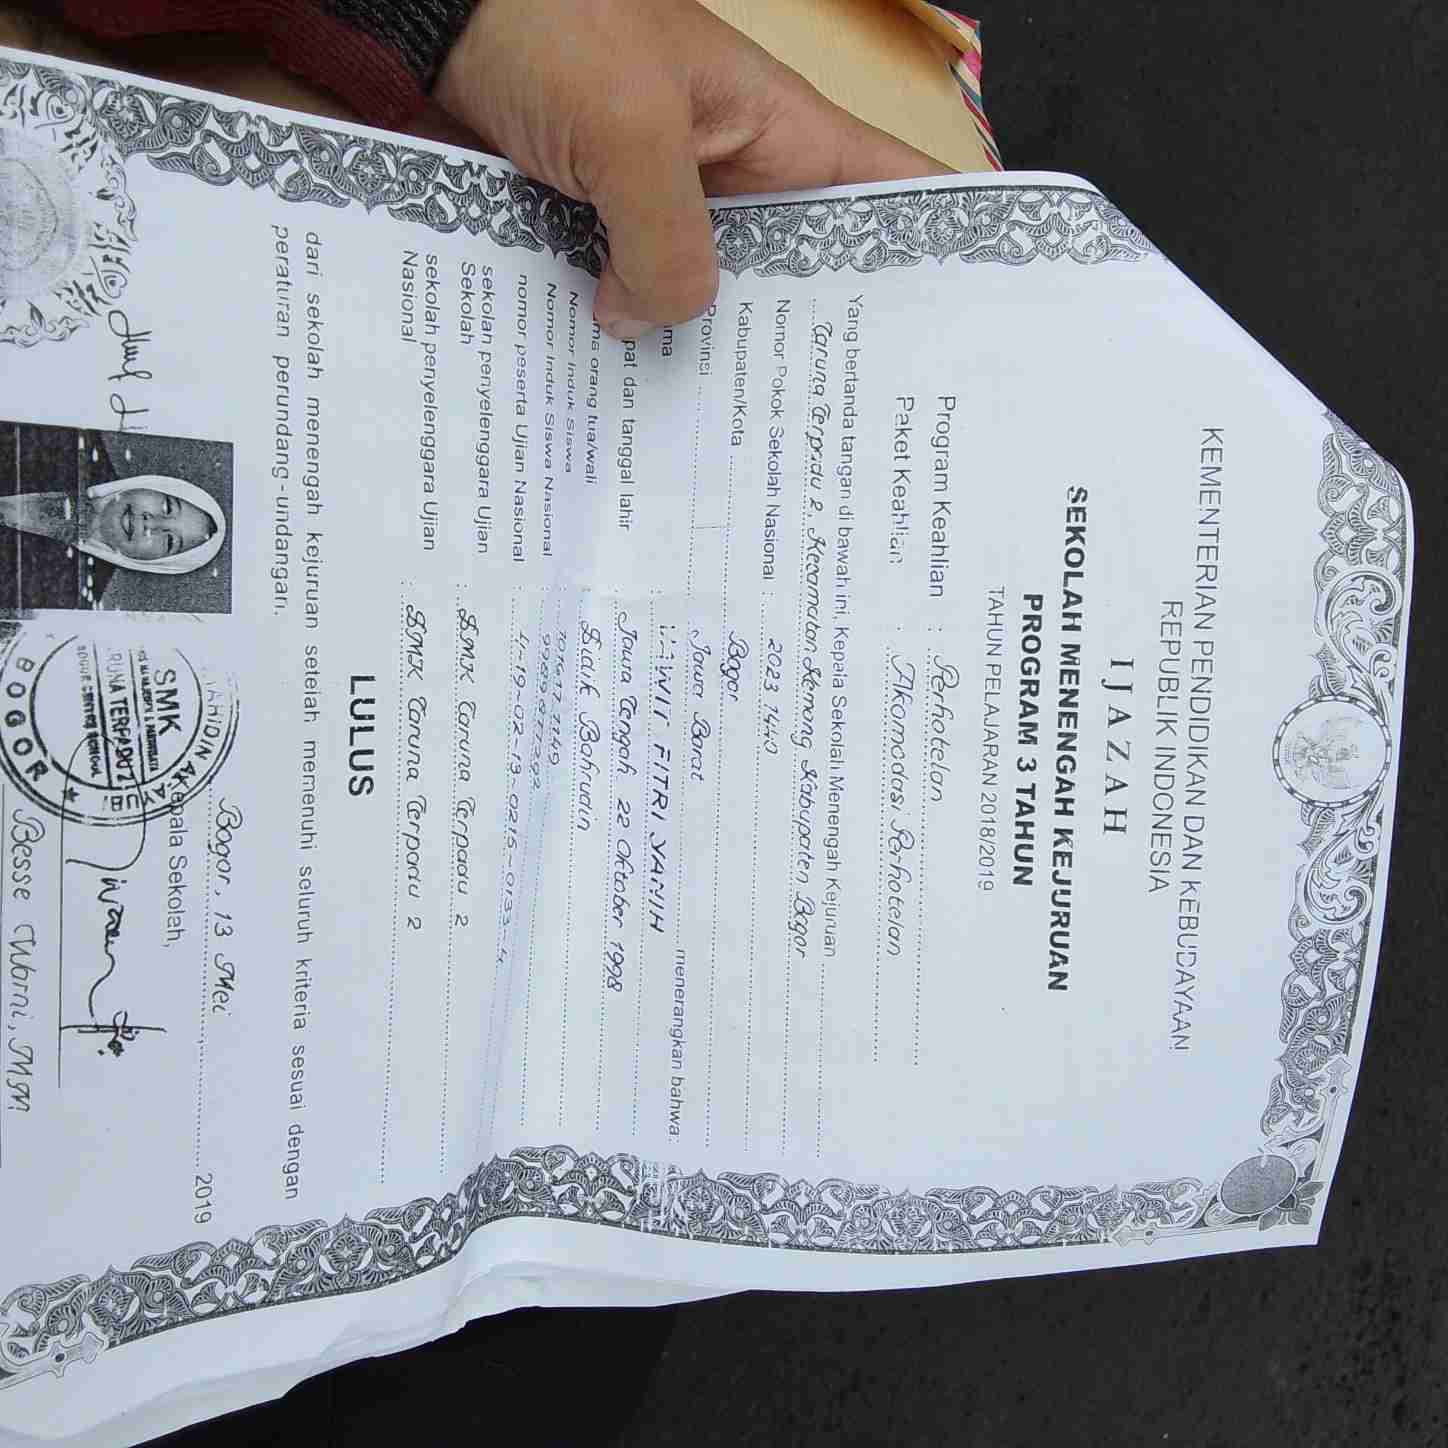 KEMENTERIAN PENDIDIKAN DAN KEBUDAYAAN
REPUBLIK INDONESIA
IJAZAH
SEKOLAH MENENGAH KEJURUAN
PROGRAM 3 TAHUN
TAHUN PELAJARAN 2018/2019
Program Keahlian : Perhotelan
Paket Keahlian : Akomodasi Perhotelan
Yang bertanda tangan di bawah ini, Kepala Sekolah Menengah Kejuruan
Taruna Terpadu 2, Kecamatan Kemang Kabupaten Bogor
Nomor Pokok Sekolah Nasional : 20237440
Kabupaten/Kota Bogor
Provinsi Jawa Barat menerangkan bahwa:
ama : FITRI YANIH
pat dan tanggal lahir : Jawa Tengah, 22 Oktober 1998
ma orang tua/wali : Didik Bahrudin
Nomor Induk Siswa :
Nomor Induk Siswa Nasional :
nomor peserta Ujian Nasional : 4-19-02-13-0215-0133-4
sekolah penyelenggara Ujian : SMK Taruna Terpadu 2
Sekolah
sekolah penyelenggara Ujian : SMK Taruna Terpadu 2
Nasional
LULUS
dari sekolah menengah kejuruan setelah memenuhi seluruh kriteria sesuai dengan
peraturan perundang-undangan.
Bogor, 13 Mei 2019
Kepala Sekolah,
SMK
RUNA TERPADU 2
BOGOR
Besse Warni, MM